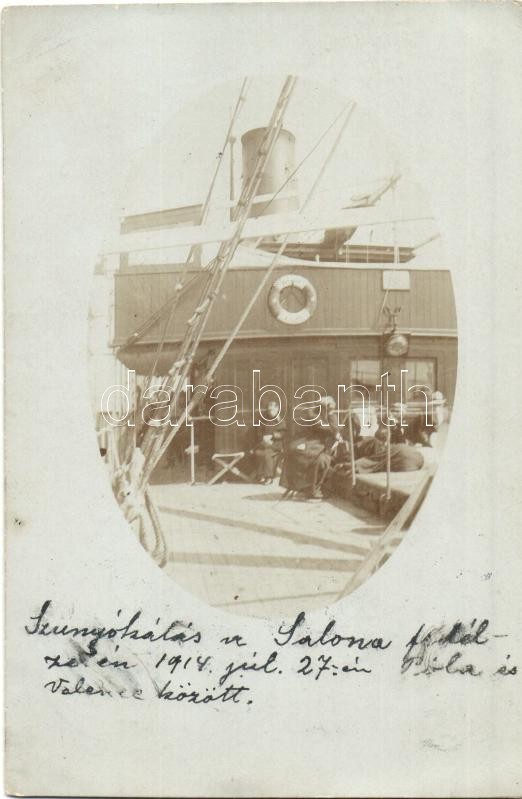 darabanth
Szunyókálás a Salona fedél-
zetén 1914. júl. 27-én Póla és
között.